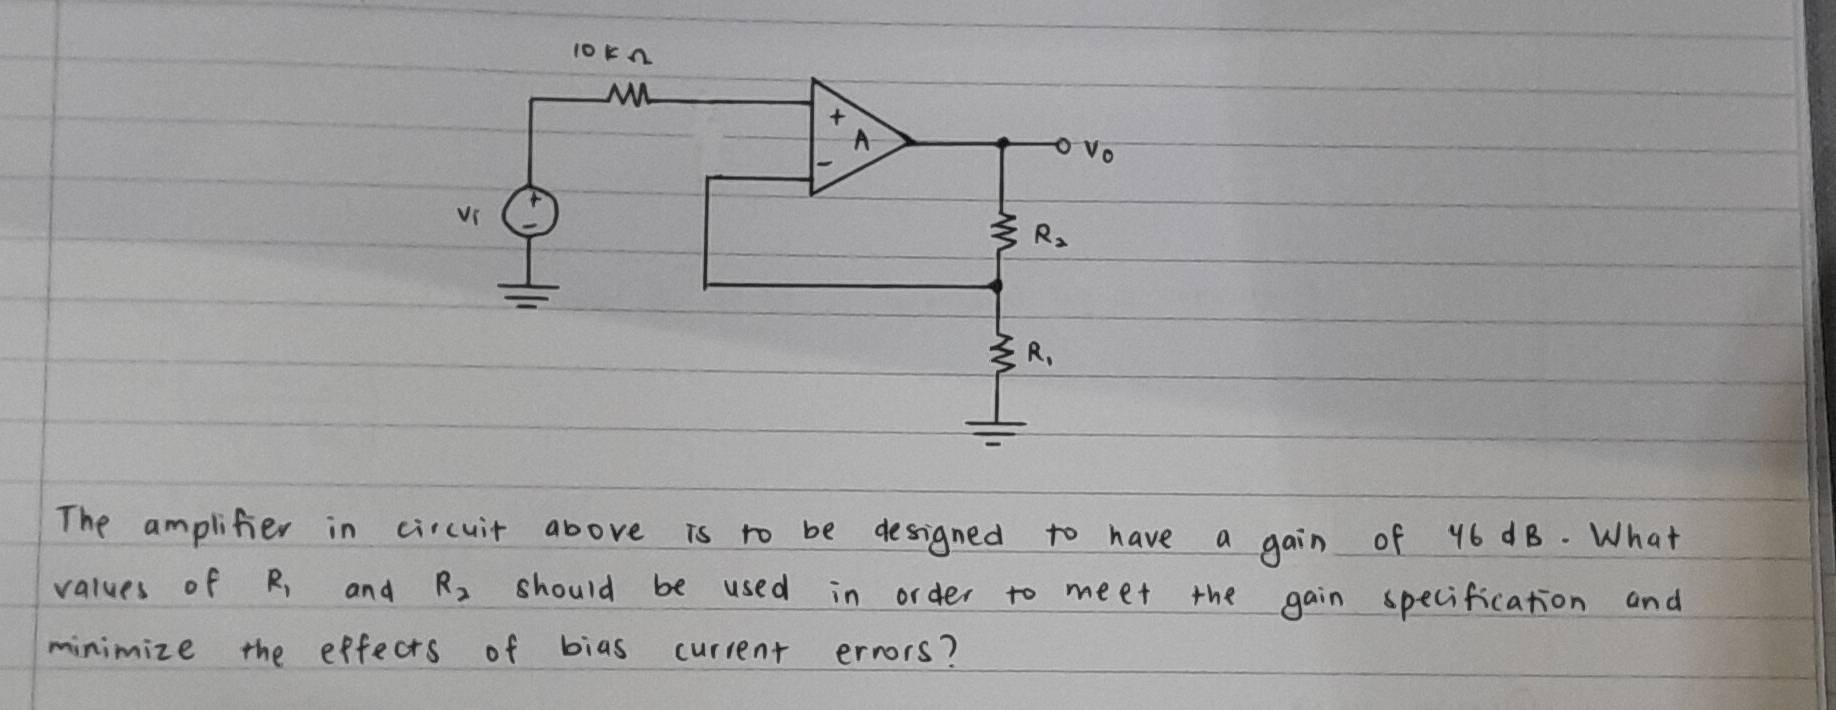 10 k Ω
+
A
-
Vo
+
-
Vi
R₂
R₁
The amplifier in circuit above is to be designed to have a gain of 46 dB. What
values of R₁ and R₂ should be used in order to meet the gain specification and
minimize the effects of bias current errors?